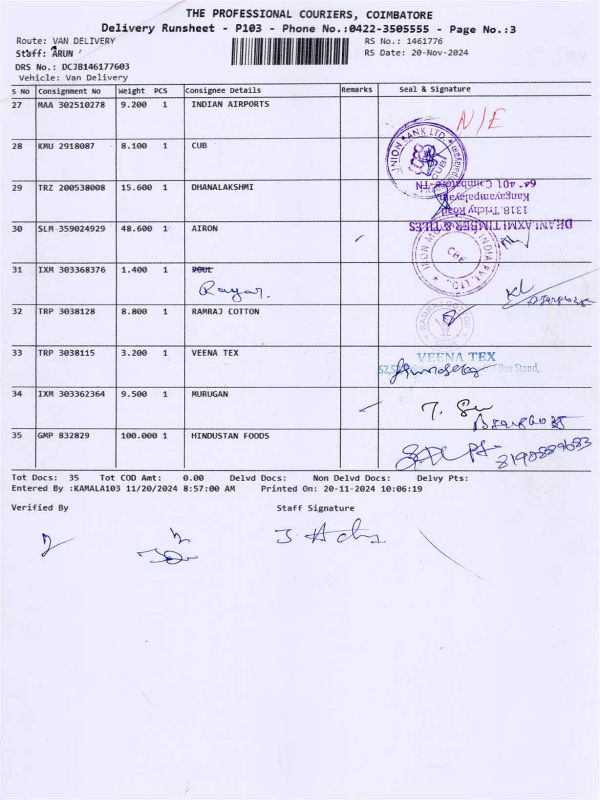 THE PROFESSIONAL COURIERS, COIMBATORE
Delivery Runsheet - P103 - Phone No.:0422-3505555 - Page No.:3
Route: VAN DELIVERY RS No.: 1461776
Staff: ARUN RS Date: 20-Nov-2024
DRS No.: DCJB146177603
Vehicle: Van Delivery
S No Consignment No Weight PCS Consignee Details Remarks Seal & Signature
27 MAA 302510278 9.200 1 INDIAN AIRPORTS N/E
28 KMU 2918087 8.100 1 CUB
UNION BANK LTD.
29 TRZ 200538008 15.600 1 DHANALAKSHMI
64 - 401 Coimbatore - TN
Kangayampalayam
1318, Trichy Road
DHANLAXMI TIMBER & TILES
30 SLM 359024929 48.600 1 AIRON
INDIA PVT. LTD.
31 IXM 303368376 1.400 1 POUL
Rayar.
32 TRP 3038128 8.800 1 RAMRAJ COTTON
33 TRP 3038115 3.200 1 VEENA TEX
VEENA TEX
Bus Stand,
34 IXM 303362364 9.500 1 MURUGAN
35 GMP 832829 100.000 1 HINDUSTAN FOODS
Tot Docs: 35 Tot COD Amt: 0.00 Delvd Docs: Non Delvd Docs: Delvy Pts:
Entered By :KAMALA103 11/20/2024 8:57:00 AM Printed On: 20-11-2024 10:06:19
Verified By Staff Signature